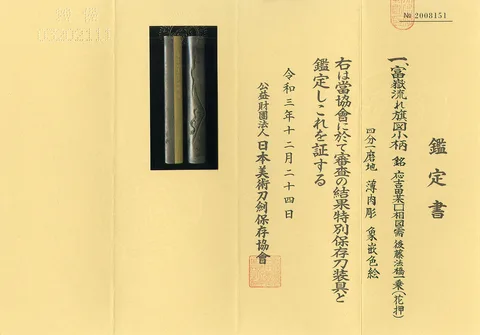 № 2008151
鑑定書
一、富嶽流れ旗図小柄 銘 応吉田 需 後藤法橋一乗(花押)
四分一磨地 薄肉彫 象嵌色絵
右は當協會に於て審査の結果特別保存刀装具と
鑑定しこれを証する
令和三年十二月二十四日
公益財團法人 日本美術刀劍保存協會